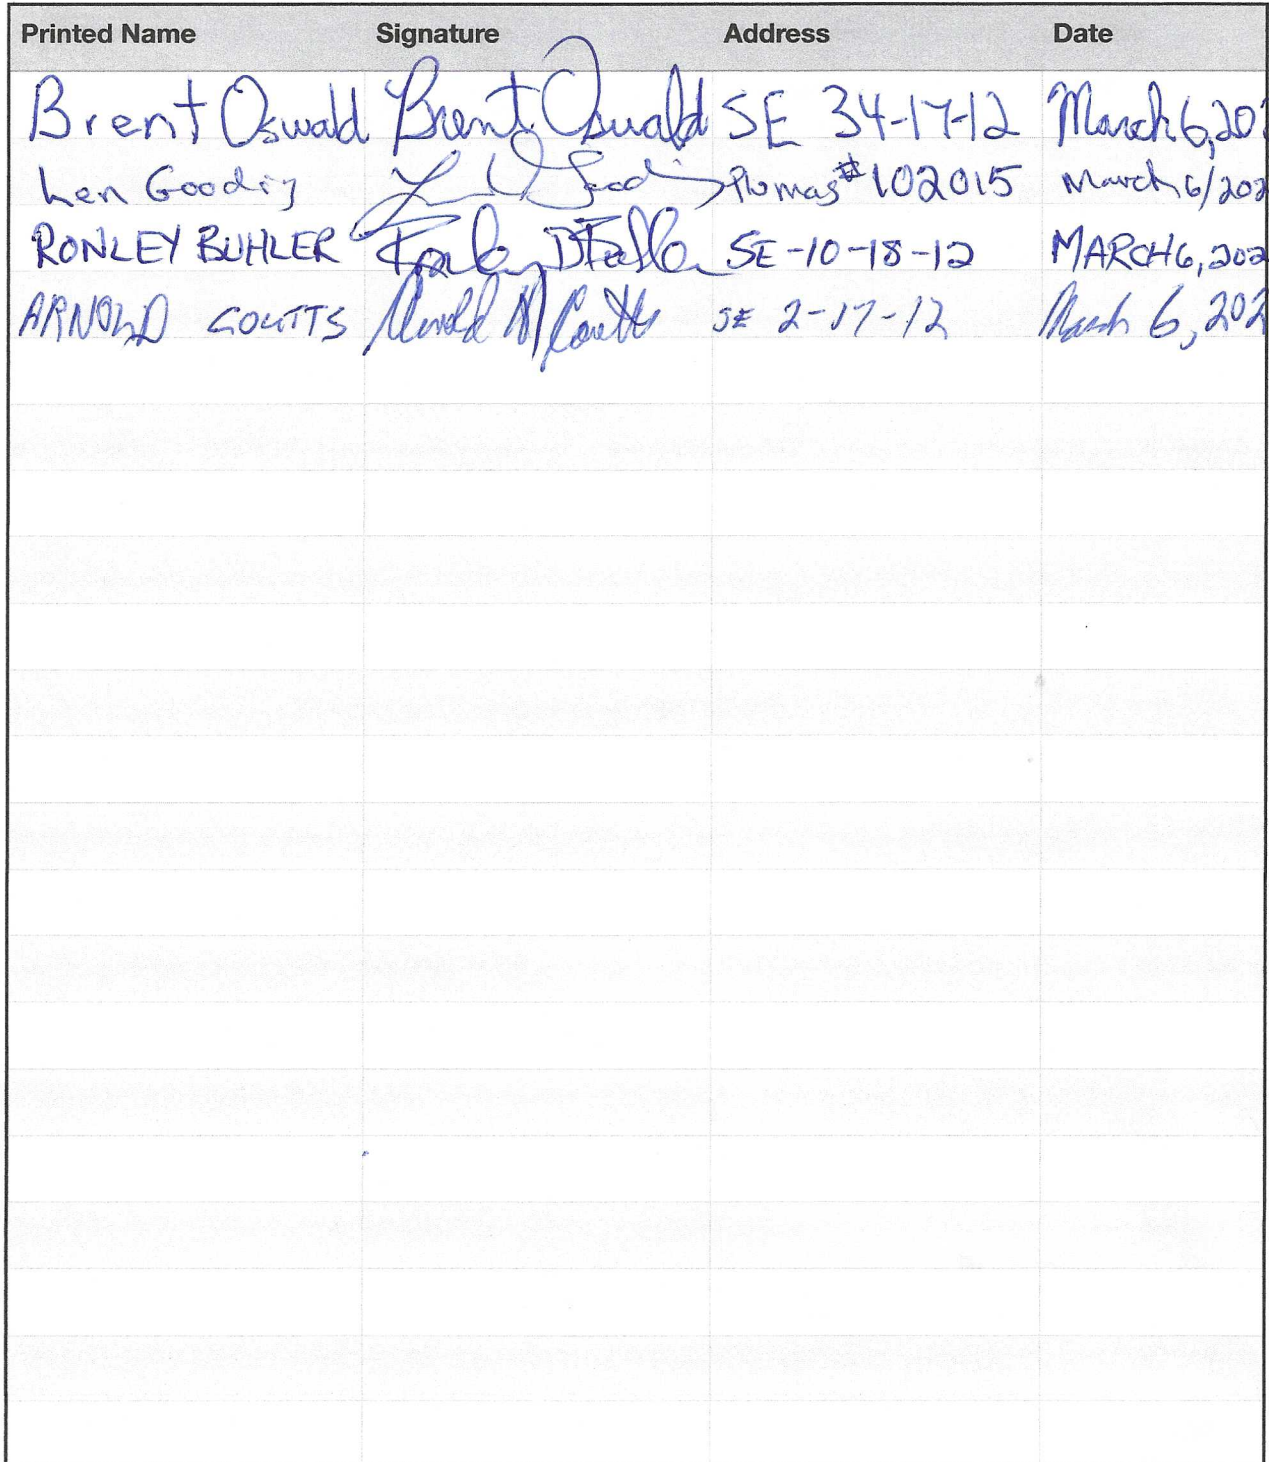 Printed Name Signature Address Date
Brent Oswald Brent Oswald SE 34-17-12 March 6, 202
Len Gooding Plumas #102015 March 6/202
RONLEY BUHLER SE-10-18-12 MARCH 6, 202
ARNOLD COUTTS Arnold Coutts SE 2-17-12 March 6, 202